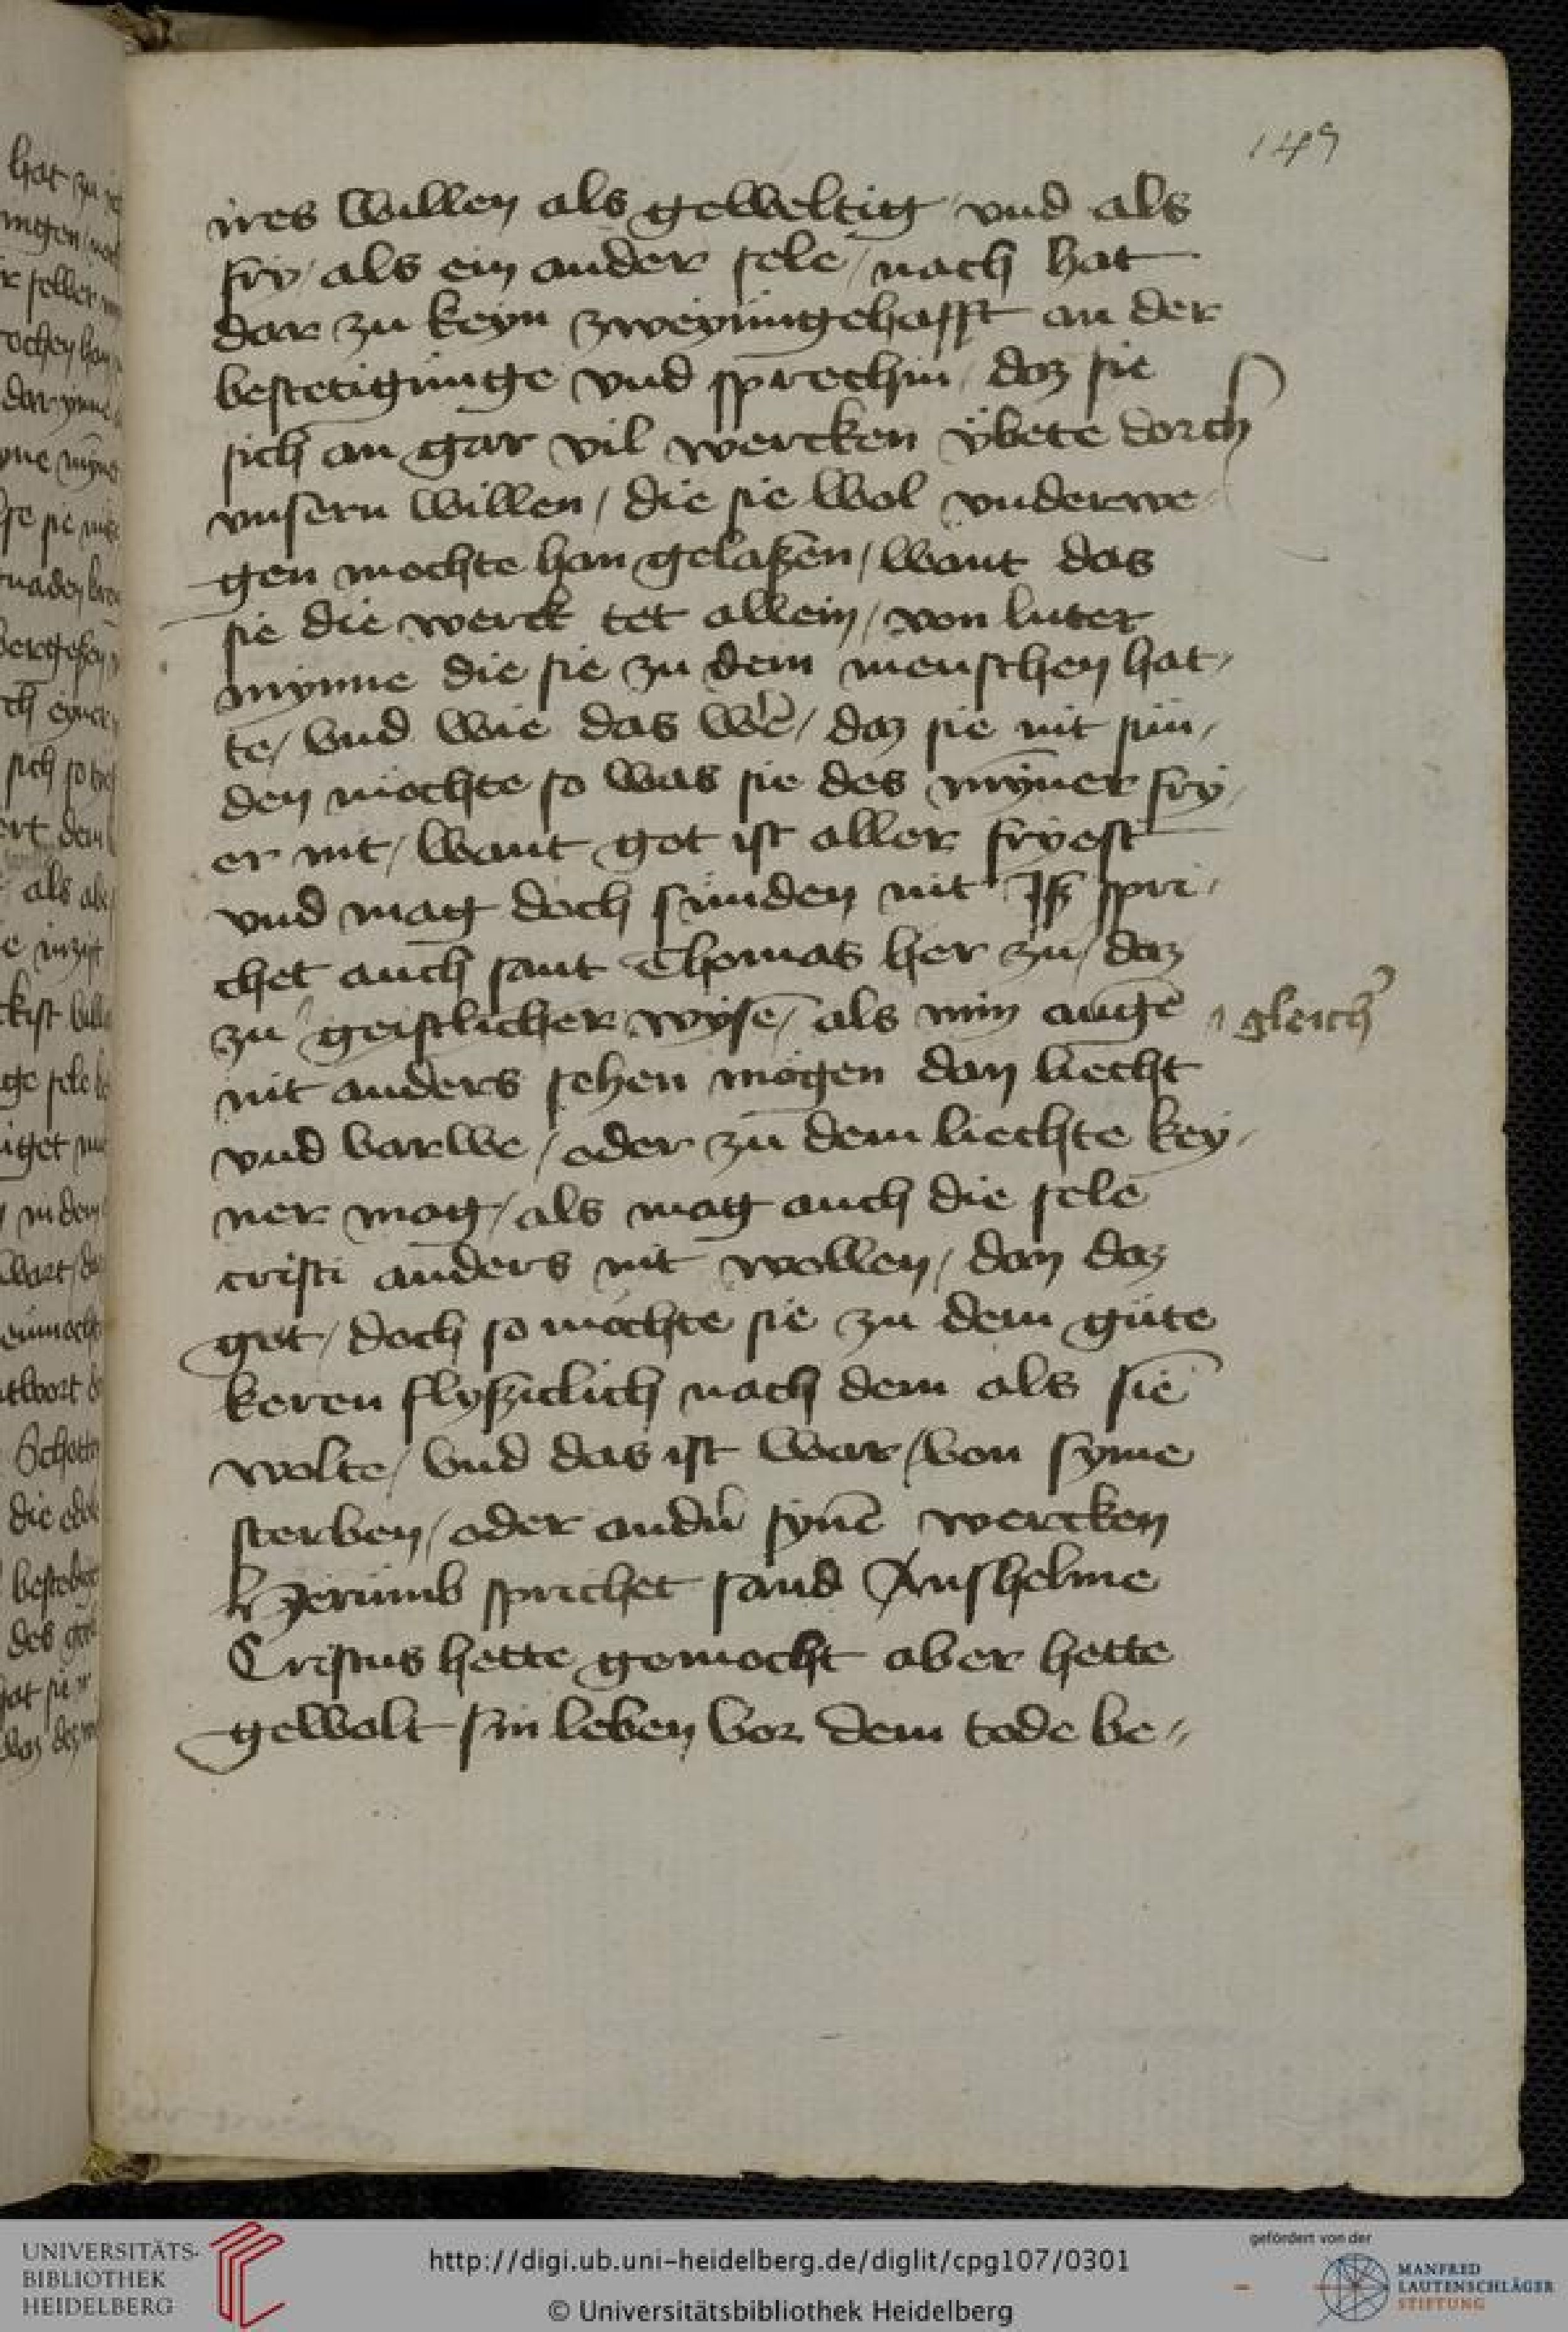 149
ires willen als geweltig vnd als
fry / als ein ander sele / nach hat
dar zu keyn zweyungehafft an der
bestetigunge vnd sprechin / daz sie
sich an gar vil wercken übete dorch
vnsern willen / die sie wol vnderwe
gen mochte han gelaßen / want das
sie die werck tet allein / von luter
mynne die sie zu dem menschen hat /
te / vnd wie das wͤre / daz sie nit sün /
den möchte so was sie des mȳner fry /
er nit / want got ist aller fryest
vnd mag doch sunden nit Iß spri /
chet auch sant Thomas her zu / daz
zu geistlicher wyse / als min auge gleich
nit anders sehen mögen dan liecht
vnd varwe / oder zu dem liechte key /
ner mag / als mag auch die sele
cristi anders nit wollen / dan daz
got / doch so möchte sie zu dem güte
keren flyßiclich nach dem als sie
wolte / vnd das ist war / von syme
sterben / oder andn̄ synē wercken
Hervmb sprichet sand Anshelme
Cristus hette gemocht aber hette
gewalt sin leben vor dem tode be //
hat zu
selber
dar ynne
als
sich so
UNIVERSITÄTS-
BIBLIOTHEK
HEIDELBERG
http://digi.ub.uni-heidelberg.de/diglit/cpg107/0301
© Universitätsbibliothek Heidelberg
gefördert von der
MANFRED
LAUTENSCHLÄGER
STIFTUNG